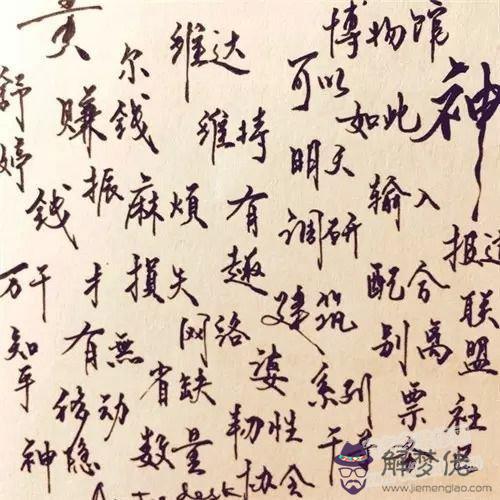 黄
尔
维达
博物馆
神
舒婷
赚钱
维持
可以
如此
钱
振
麻烦
有趣
明天
调研
输入
报道
万千
才
損失
建筑
配合
联盟
知乎
有無
网络
婆
别离
省缺
系列
票
社
移动
韧性
神隐
数量
协会
干
解梦佬
www.jiemenglao.com